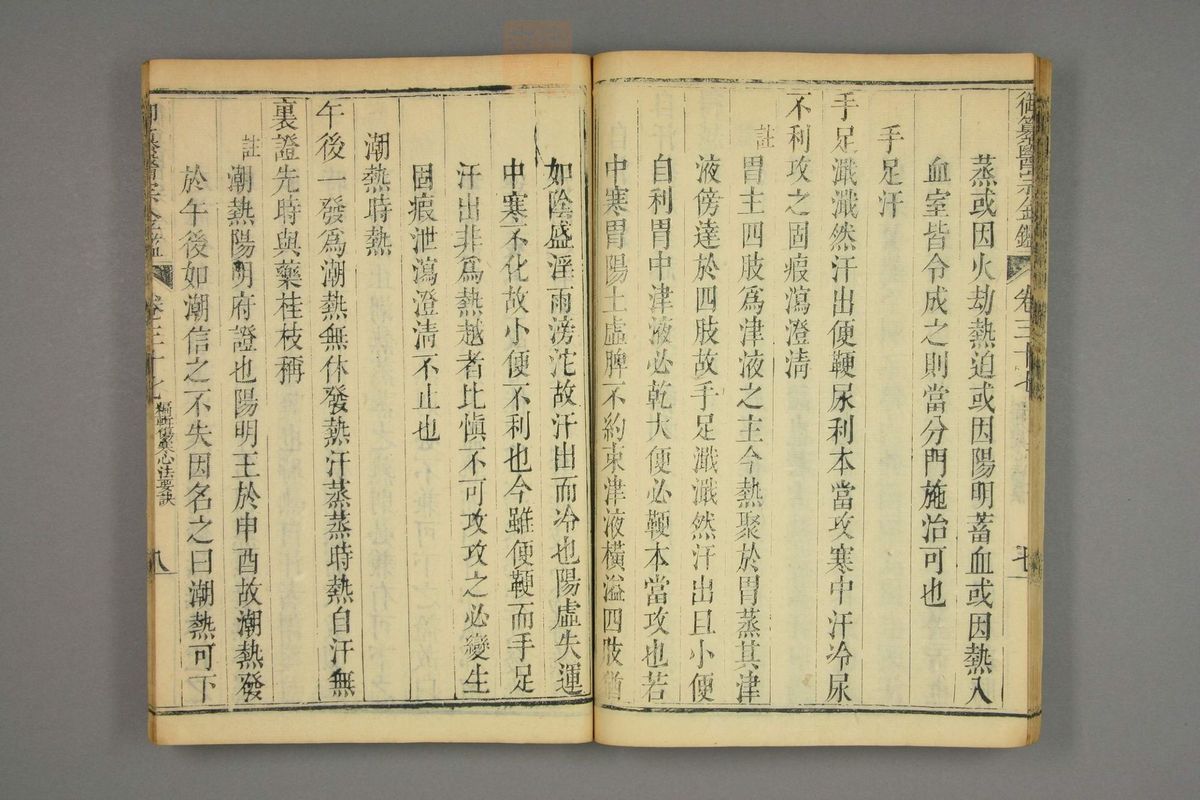 御纂醫宗金鑑 卷三十七 七
蒸或因火劫熱迫或因陽明蓄血或因熱入
血室皆令成之則當分門施治可也
手足汗
手足濈濈然汗出便鞕尿利本當攻寒中汗冷尿
不利攻之固瘕瀉澄清
註
胃主四肢爲津液之主今熱聚於胃蒸其津
液傍達於四肢故手足濈濈然汗出且小便
自利胃中津液必乾大便必鞕本當攻也若
中寒胃陽土虛脾不約束津液橫溢四肢猶
如陰盛淫雨滂沱故汗出而冷也陽虛失運
中寒不化故小便不利也今雖便鞕而手足
汗出非爲熱越者比慎不可攻攻之必變生
固瘕泄瀉澄清不止也
潮熱時熱
午後一發爲潮熱無休發熱汗蒸蒸時熱自汗無
裏證先時與藥桂枝稱
註
潮熱陽明府證也陽明王於申酉故潮熱發
於午後如潮信之不失因名之曰潮熱可下
御纂醫宗金鑑 卷三十七 編輯傷寒心法要訣 八